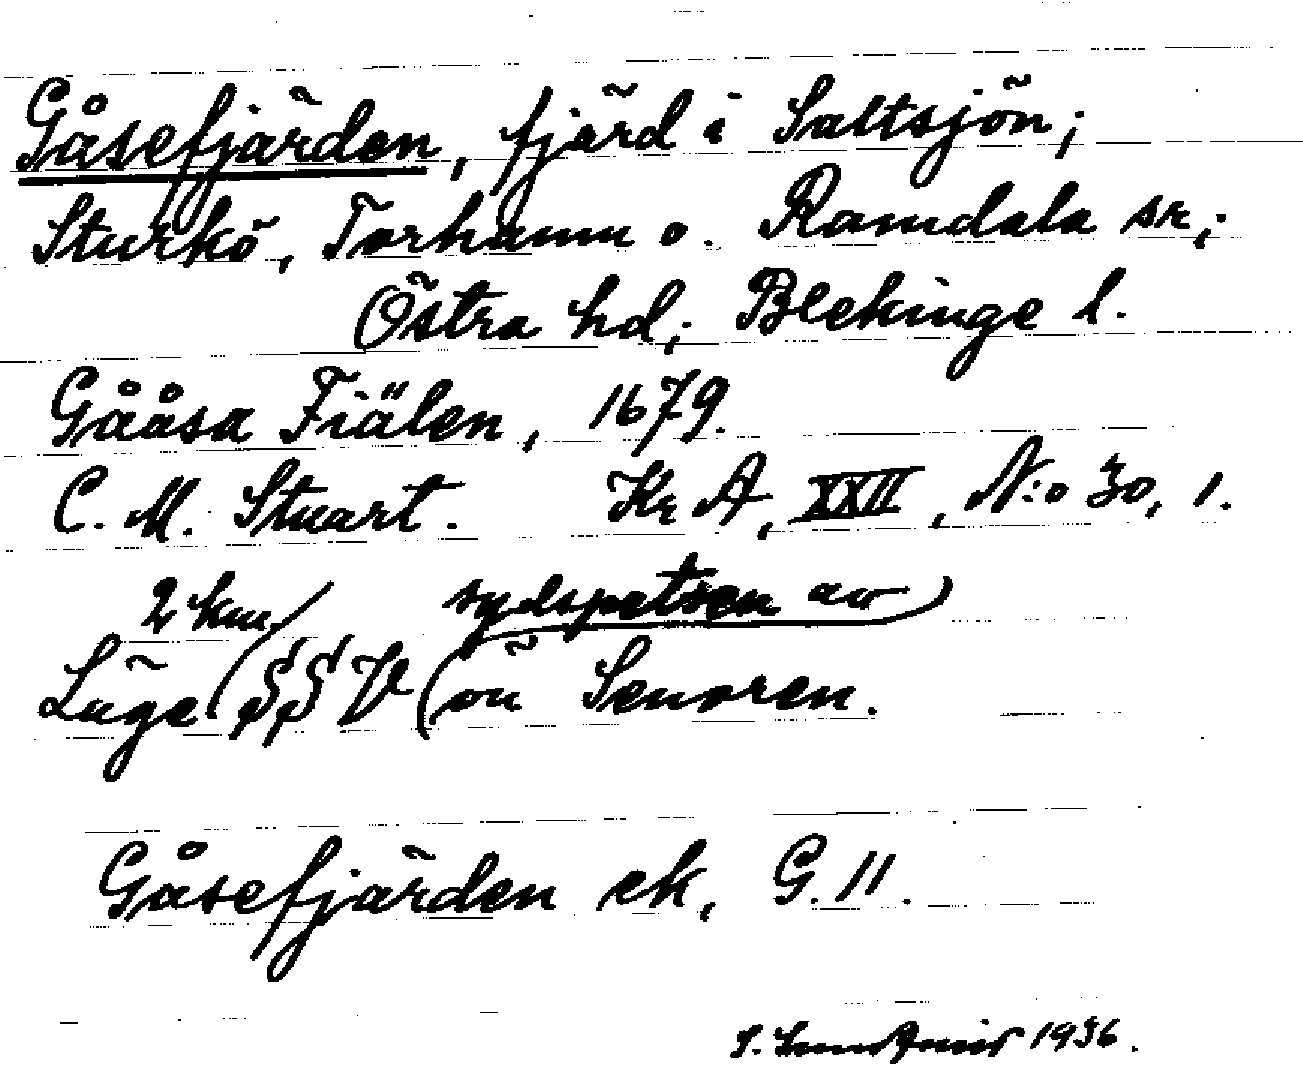 Gåsefjärden, fjärd i Saltsjön;
Sturkö, Torhamn o. Ramdala sn;
Östra hd; Blekinge l.
Gååsa Fiälen, 1679.
C. M. Stuart. Kr A, XXII, N:o 30, 1.
2 km sydspetsen av
Läge SSV ön Senoren.
Gåsefjärden ek, G. 11.
1936.